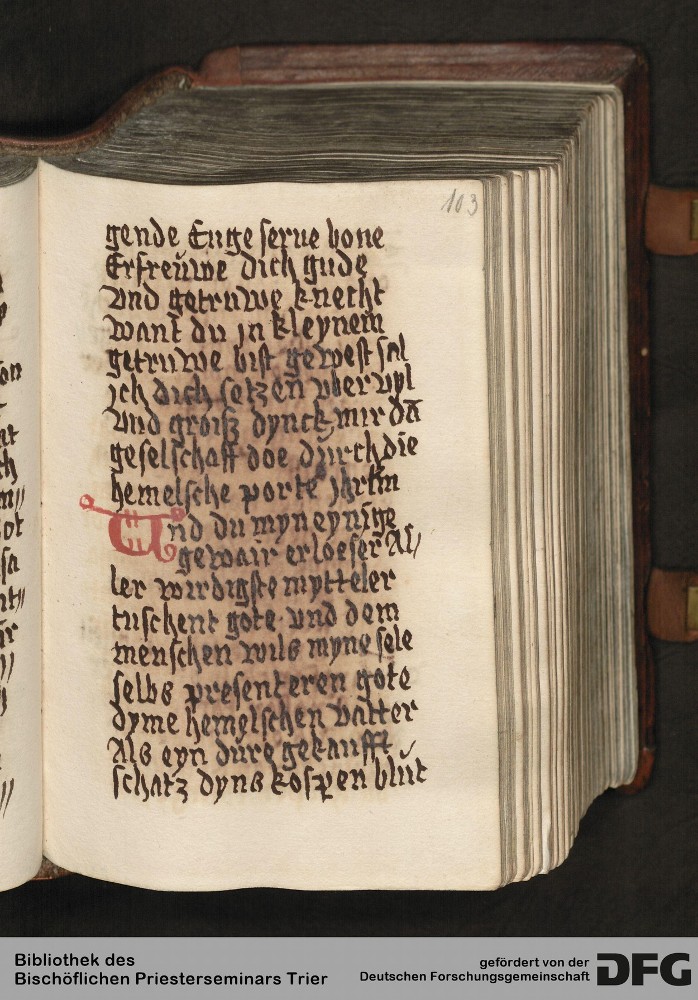 103
gende Euge serue bone
Erfreuwe dich gude
vnd getruwe knecht
want du jn kleynem
getruwe bist gewest sal
jch dich setzen vber vyl
vnd groisz dynck mir dā
geselschaff doe durch die
hemelsche porte jhrlm̄
Und du myn eynige
gewair erloeser Al//
ler wirdigste mytteler
tuschent gote vnd dem
menschen wils myne sele
selbs presenteren gote
dyme hemelschen vatter
Als eyn dure gekaufft
schatz dyns kosꝑen blut
Bibliothek des
Bischöflichen Priesterseminars Trier
gefördert von der
Deutschen Forschungsgemeinschaft
DFG